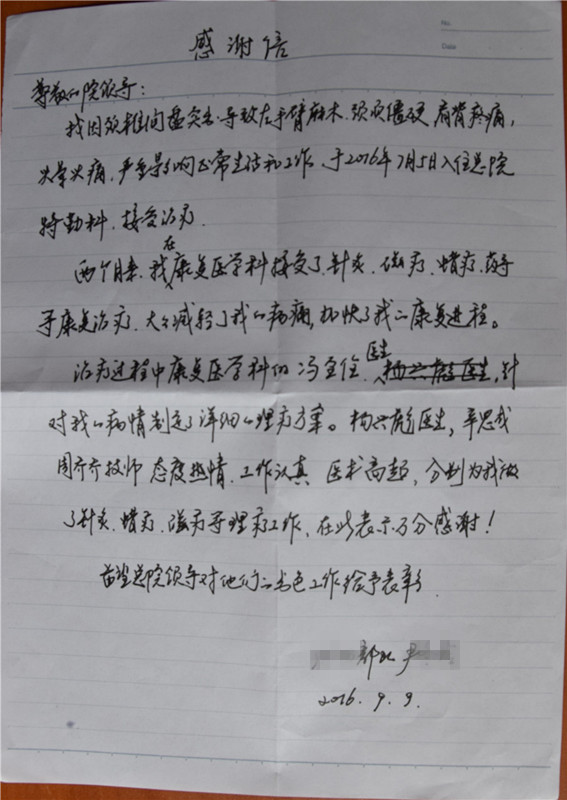 No.
Date
感谢信
尊敬的院领导：
我因颈椎间盘突出导致左手臂麻木、颈项僵硬、肩背疼痛，
头晕头痛，严重影响正常生活和工作，于2016年7月5日入住总院
特勤科，接受治疗.
两个月来，我在康复医学科接受了针灸、磁疗、蜡疗、药疗
等康复治疗，大大减轻了我的病痛，加快了我的康复进程。
治疗过程中康复医学科的冯主任、医生，针
对我的病情制定了详细的理疗方案。杨兴彪医生，辛思成
周齐齐技师态度热情，工作认真，医术高超，分别为我做
了针灸、蜡疗、磁疗等理疗工作，在此表示万分感谢！
希望总院领导对他们的出色工作给予表彰.
2016.9.9.